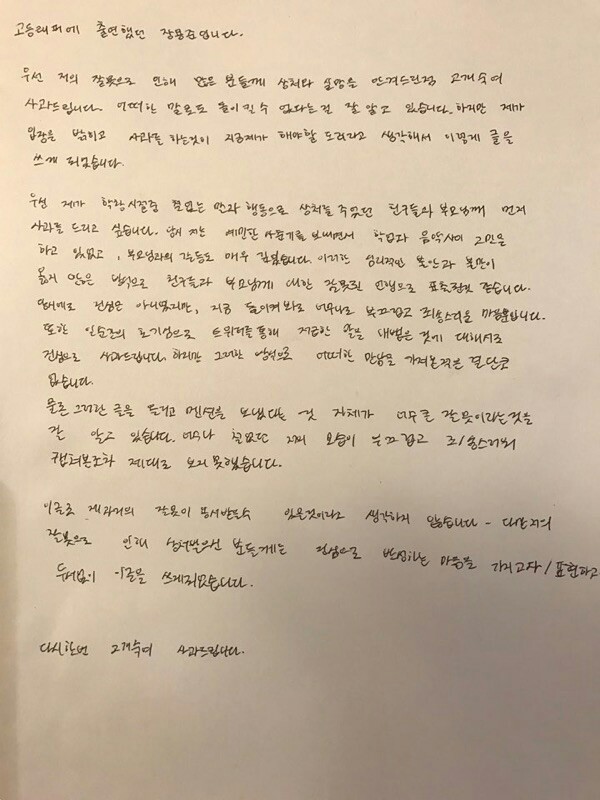 고등래퍼에 출연했던 장용준입니다.
우선 저의 잘못으로 인해 많은 분들께 상처와 실망을 안겨드린점 고개숙여
사과드립니다. 어떠한 말로도 돌이킬 수 없다는걸 잘 알고 있습니다. 하지만 제가
입장을 밝히고 사과를 하는것이 지금제가 해야할 도리라고 생각해서 이렇게 글을
쓰게 되었습니다.
우선 제가 학창시절중 철없는 말과 행동으로 상처를 주었던 친구들과 부모님께 먼저
사과를 드리고 싶습니다. 당시 저는 예민한 사춘기를 보내면서 학업과 음악사이 고민을
하고 있었고, 부모님과의 갈등도 매우 깊었습니다. 이러한 심리적인 불안과 불만이
옳지 않은 방식으로 친구들과 부모님께 대한 잘못된 언행으로 표출된것 같습니다.
당시에도 진심은 아니었지만, 지금 돌이켜봐도 너무나도 부끄럽고 죄송스러운 마음뿐입니다.
또한 일순간의 호기심으로 트위터를 통해 저급한 말을 내뱉은 것에 대해서도
진심으로 사과드립니다. 하지만 그러한 방식으로 어떠한 만남을 가져본적은 결단코
없습니다.
물론 그러한 글을 올리고 멘션을 보냈다는 것 자체가 너무큰 잘못이라는것을
잘 알고 있습니다. 너무나 철없던 제 모습이 부끄럽고 죄송스러워
캡쳐본조차 제대로 보지 못했습니다.
이글로 제과거의 잘못이 용서받을수 있을것이라고 생각하지 않습니다. 다만 저의
잘못으로 인해 상처받으신 분들께는 진심으로 반성하는 마음을 가지고자/표현하고
두서없이 이글을 쓰게되었습니다.
다시한번 고개숙여 사과드립니다.